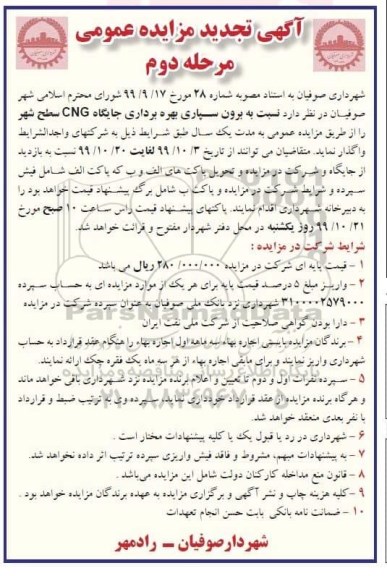 آگهی تجدید مزایده عمومی
مرحله دوم
شهرداری صوفیان به استناد مصوبه شماره ۲۸ مورخ ۹۹/۹/۱۷ شورای محترم اسلامی شهر
صوفیان در نظر دارد نسبت به برون سپاری بهره برداری جایگاه CNG سطح شهر
را از طریق مزایده عمومی به مدت یک سال طبق شرایط ذیل به شرکتهای واجدالشرایط
واگذار نماید. متقاضیان می توانند از تاریخ ۹۹/۱۰/۳ لغایت ۹۹/۱۰/۲۰ نسبت به بازدید
از جایگاه و شرکت در مزایده و تحویل پاکت های الف و ب که پاکت الف شامل فیش
سپرده و شرایط شرکت در مزایده و پاکت ب شامل برگ پیشنهاد قیمت خواهد بود را
به دبیرخانه شهرداری اقدام نمایند. پاکتهای پیشنهاد قیمت راس ساعت ۱۰ صبح مورخ
۹۹/۱۰/۲۱ روز یکشنبه در محل دفتر شهردار مفتوح و قرائت خواهد شد.
شرایط شرکت در مزایده :
۱ – قیمت پایه ای شرکت در مزایده ۲۸۰/۰۰۰/۰۰۰ ریال می باشد
۲ – واریز مبلغ ۵ درصد قیمت پایه برای هر یک از موارد مزایده ای به حساب سپرده
۳۱۰۰۰۰۲۵۷۹۰۰۰ شهرداری نزد بانک ملی صوفیان به عنوان سپرده شرکت در مزایده
۳ – دارا بودن گواهی صلاحیت از شرکت ملی نفت ایران
۴ – برندگان مزایده بایستی اجاره بهاء سه ماهه اول اجاره بهاء را هنگام عقد قرارداد به حساب
شهرداری واریز نمایند و برای مابقی اجاره بهاء از هر سه ماه یک فقره چک ارائه نمایند.
۵ – سپرده نفرات اول و دوم تا تعیین و اعلام برنده مزایده نزد شهرداری باقی خواهد ماند
و هرگاه برنده مزایده از عقد قرارداد خودداری نماید، سپرده وی به ترتیب ضبط و قرارداد
با نفر بعدی منعقد خواهد شد.
۶ – شهرداری در رد یا قبول یک یا کلیه پیشنهادات مختار است .
۷ – به پیشنهادات مبهم، مشروط و فاقد فیش واریزی سپرده ترتیب اثر داده نخواهد شد.
۸ – قانون منع مداخله کارکنان دولت شامل این مزایده می‌باشد .
۹ –کلیه هزینه چاپ و نشر آگهی و برگزاری مزایده به عهده برندگان مزایده خواهد بود .
۱۰ – ضمانت نامه بانکی بابت حسن انجام تعهدات
شهردارصوفیان – رادمهر
ParsNamadData
پایگاه اطلاع رسانی مناقصه و مزایده